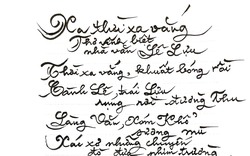 Xa thời xa vắng
Thơ biết
nhà văn Lê Lựu
Thời xa vắng, khuất bóng rồi
Cánh Lê, trái Lựu
rụng rơi đường Thu
Làng Văn, Xóm Khổ
sương mù
Xót xa những chuyện
phim trường